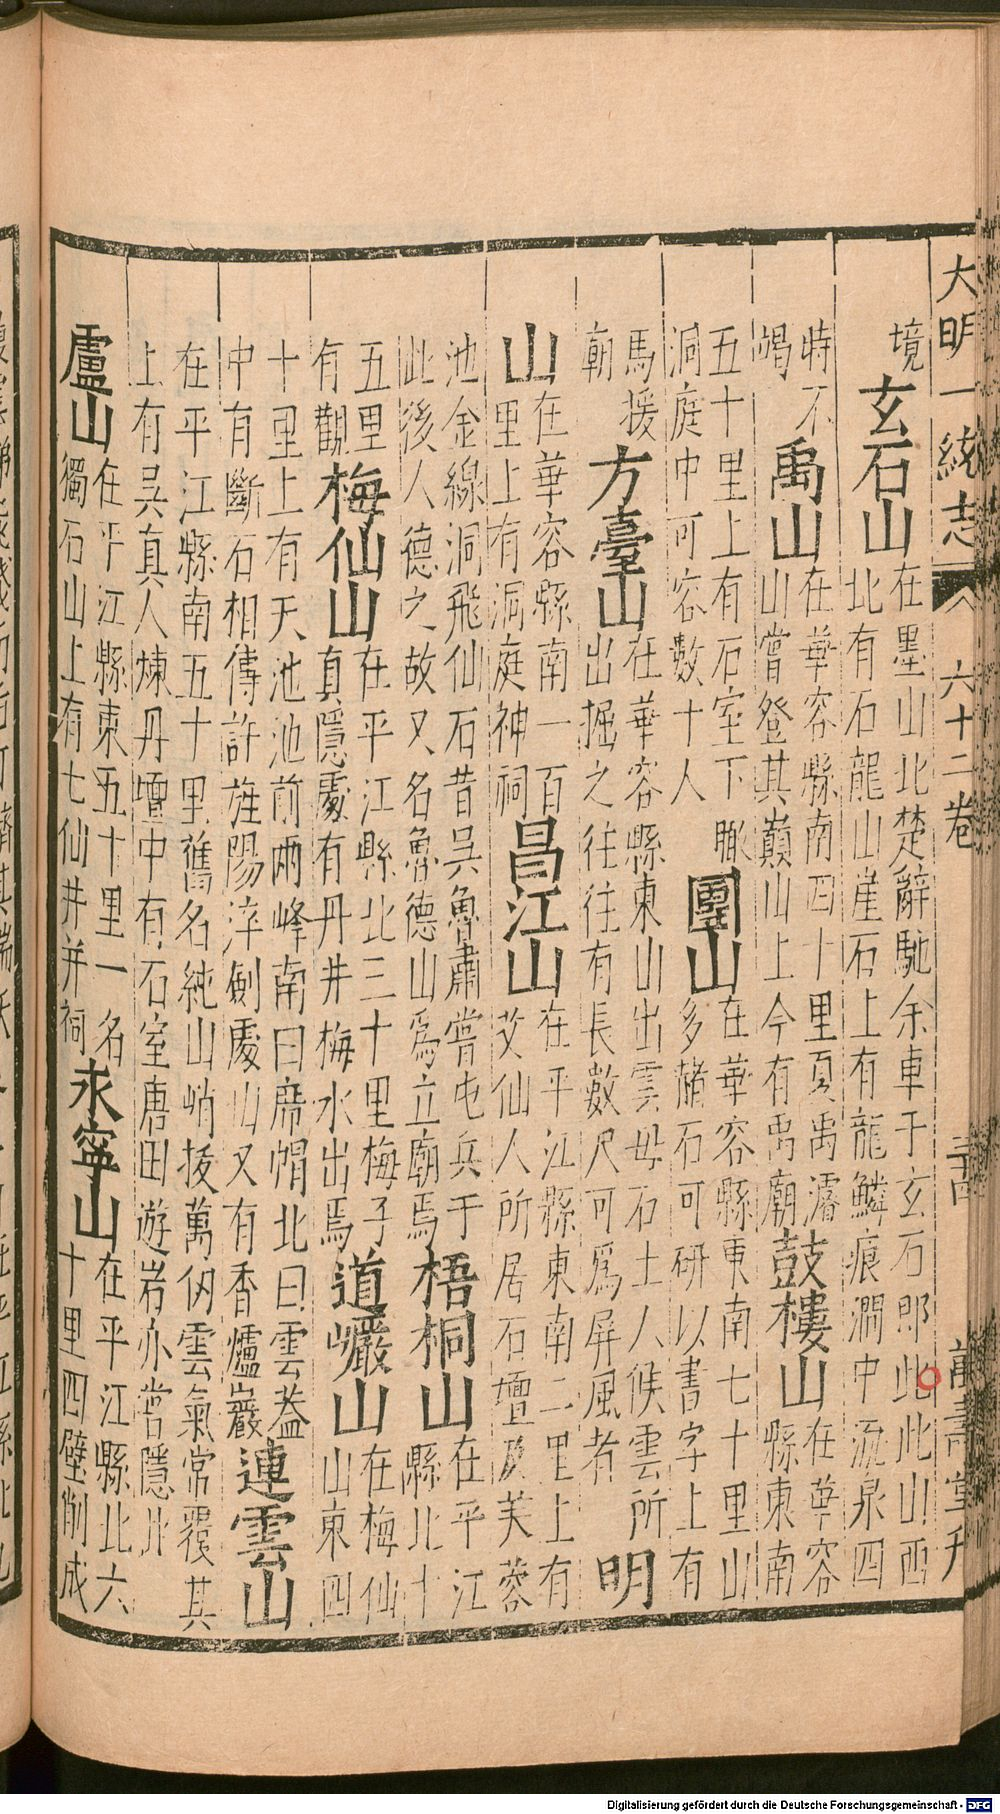 大明一統志 六十二卷 二十四 萬壽堂刊
境
玄石山
在墨山北楚辭馳余車于玄石即此此山西
北有石龍山崖石上有龍鱗痕澗中流泉四
時不
竭
禹山
在華容縣南四十里夏禹濬
山嘗登其巔山上今有禹廟
鼓樓山
在華容
縣東南
五十里上有石室下瞰
洞庭中可容數十人
團山
在華容縣東南七十里山
多赭石可研以書字上有
馬援
廟
方臺山
在華容縣東山出雲母石土人候雲所
出掘之往往有長數尺可為屏風者
明
山
在華容縣南一百
里上有洞庭神祠
昌江山
在平江縣東南二里上有
艾仙人所居石壇及芙蓉
池金線洞飛仙石昔吳魯肅嘗屯兵于
此後人德之故又名魯德山為立廟焉
梧桐山
在平江
縣北十
五里
有觀
梅仙山
在平江縣北三十里梅子
真隱處有丹井梅水出焉
道巗山
在梅仙
山東四
十里上有天池池前兩峰南曰席帽北曰雲蓋
中有斷石相傳許旌陽淬劍處山又有香爐巖
連雲山
在平江縣南五十里舊名純山峭拔萬仞雲氣常覆其
上有吳真人煉丹壇中有石室唐田遊岩亦嘗隱此
盧山
在平江縣東五十里一名
獨石山上有七仙井并祠
永寧山
在平江縣北六
十里四壁削成
Digitalisierung gefördert durch die Deutsche Forschungsgemeinschaft - DFG